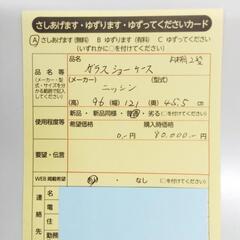 さしあげます・ゆずります・ゆずってくださいカード
Ⓐ さしあげます（無料） B ゆずります（有料） C ゆずってください
（いずれかに○を付けてください）
品名等
（メーカー・型式・サイズを分かる範囲で記入）
（品名）
ガラスショーケース
（メーカー）
（型式）
ニッシン
高 96 幅 121 奥 45.5 cm
使用程度等
新品・新品同様・普・劣（○を付けてください）
希望価格
0.-円
購入時価格
80.000.-円
要望・伝言
WEB掲載希望
あり・なし（○を付けてください）
連絡先
名
電
住
勤務